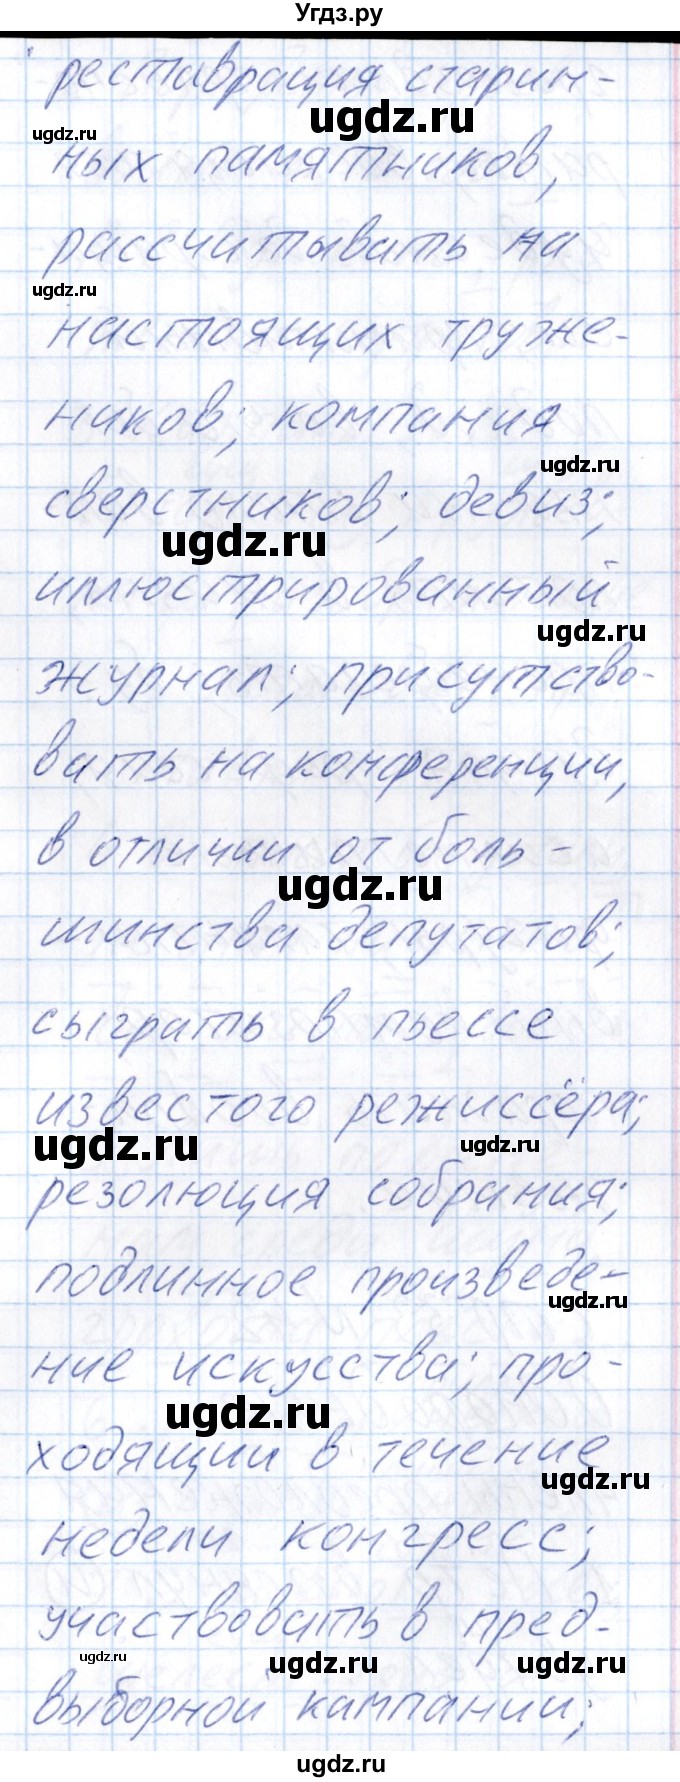 Угдз.ру
реставрация старин-
ugdz.ru
ugdz.ru
ных памятников,
рассчитывать на
ugdz.ru
настоящих труже-
ников; компания
ugdz.ru
сверстников; девиз;
ugdz.ru
иллюстрированный
ugdz.ru
журнал; присутство-
вать на конференции,
в отличии от боль-
ugdz.ru
шинства депутатов;
сыграть в пьессе
известого режиссёра;
ugdz.ru
ugdz.ru
резолюция собрания;
подлинное произведе-
ugdz.ru
ние искусства; про-
ugdz.ru
ходящий в течение
ugdz.ru
недели конгресс;
участвовать в пред-
ugdz.ru
ugdz.ru
ugdz.ru
выборной кампании;
ugdz.ru